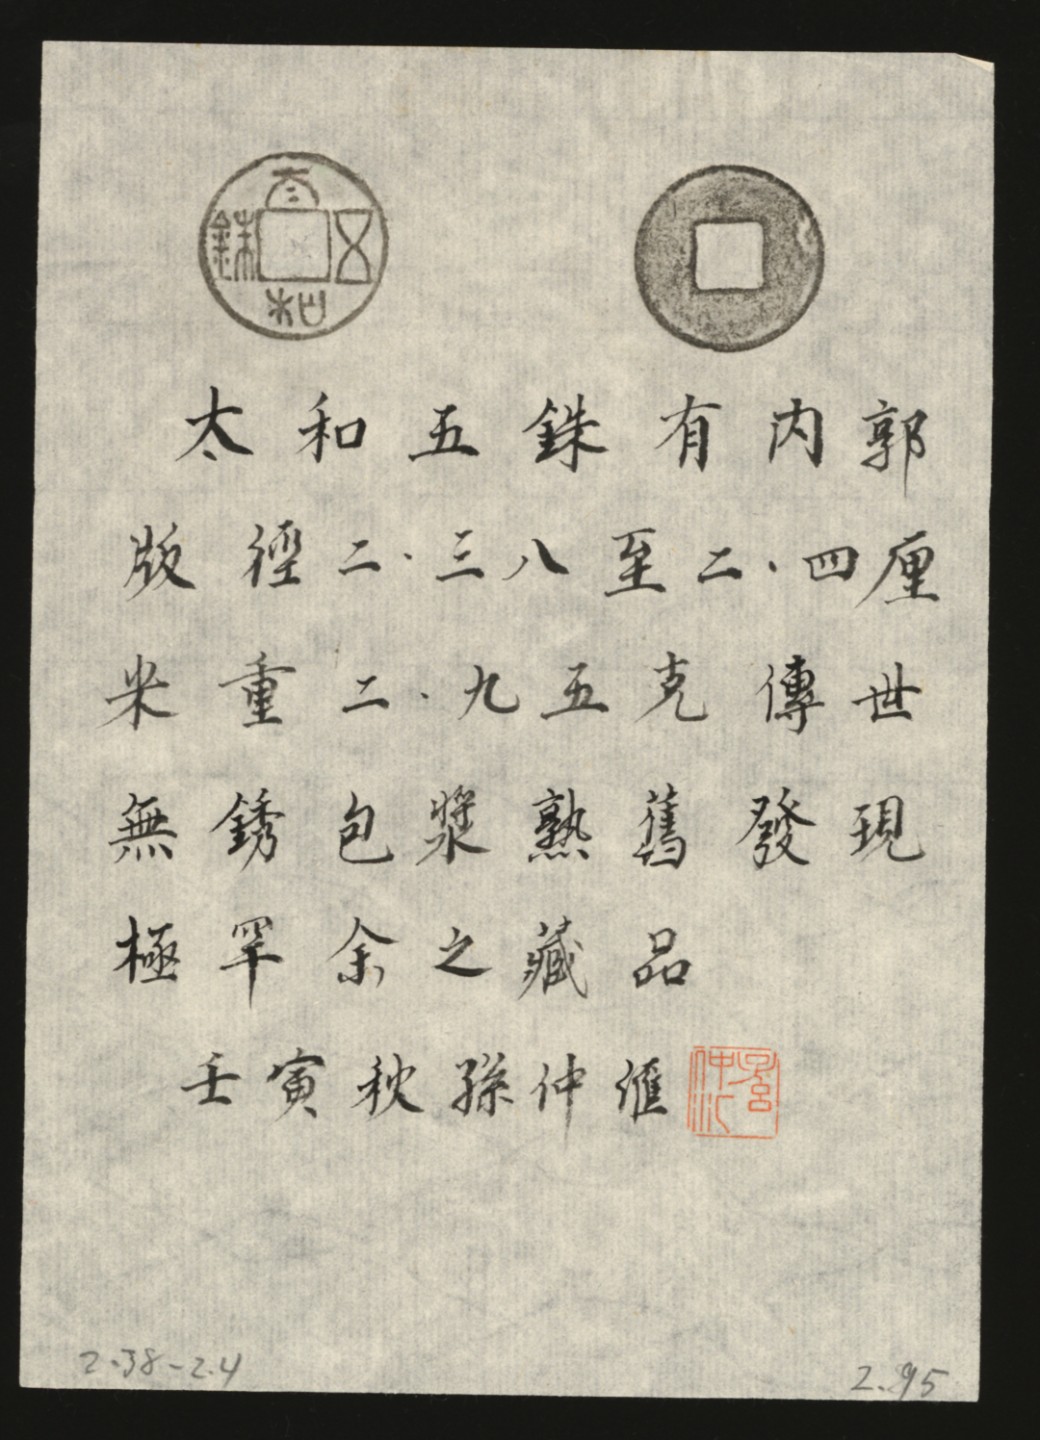 太和五銖
太和五銖有内郭
版徑二·三八至二·四厘
米重二·九五克傳世
無銹包漿熟舊發現
極罕余之藏品
壬寅秋孫仲匯
2.38-2.4
2.95